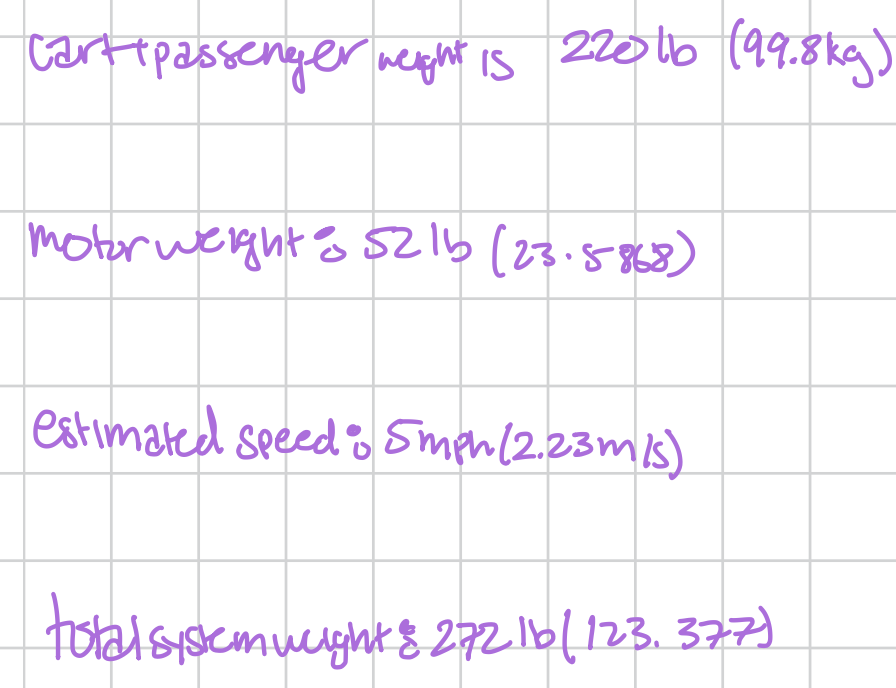 cart+passenger weight is 220lb (99.8kg)
motor weight: 52 lb (23.5868)
estimated speed: 5mph (2.23m/s)
total system weight: 272 lb (123.377)